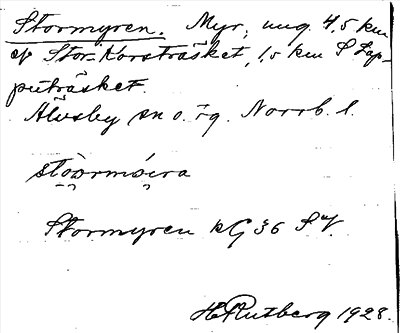 Stormyren. Myr, ung. 4,5 km
af Stor-Korsträsket, 1,5 km S Lap-
puträsket.
Älvsby sn o. tg. Norrb. l.
Stormyren kG 36 S
H Rutberg 1928.